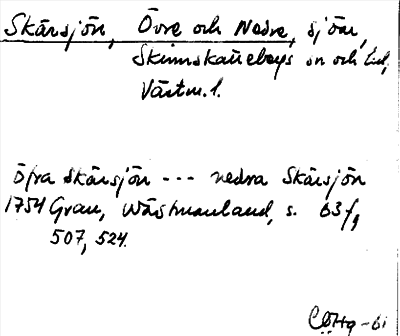 Skärsjön, Övre och Nedre, sjöar,
Skinnskattebergs sn och hd,
Västm. l.
Öfra skärsjön --- nedra Skärsjön
1754 Grau, Wästmanland, s. 63 f,
507, 524.